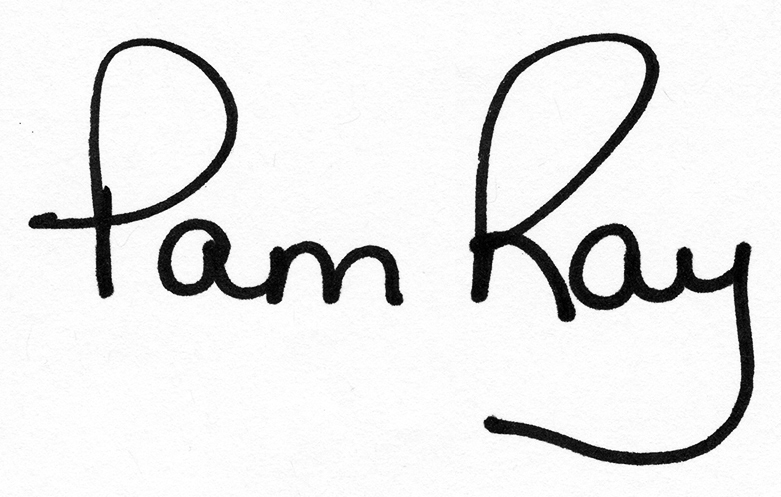 Pam Ray